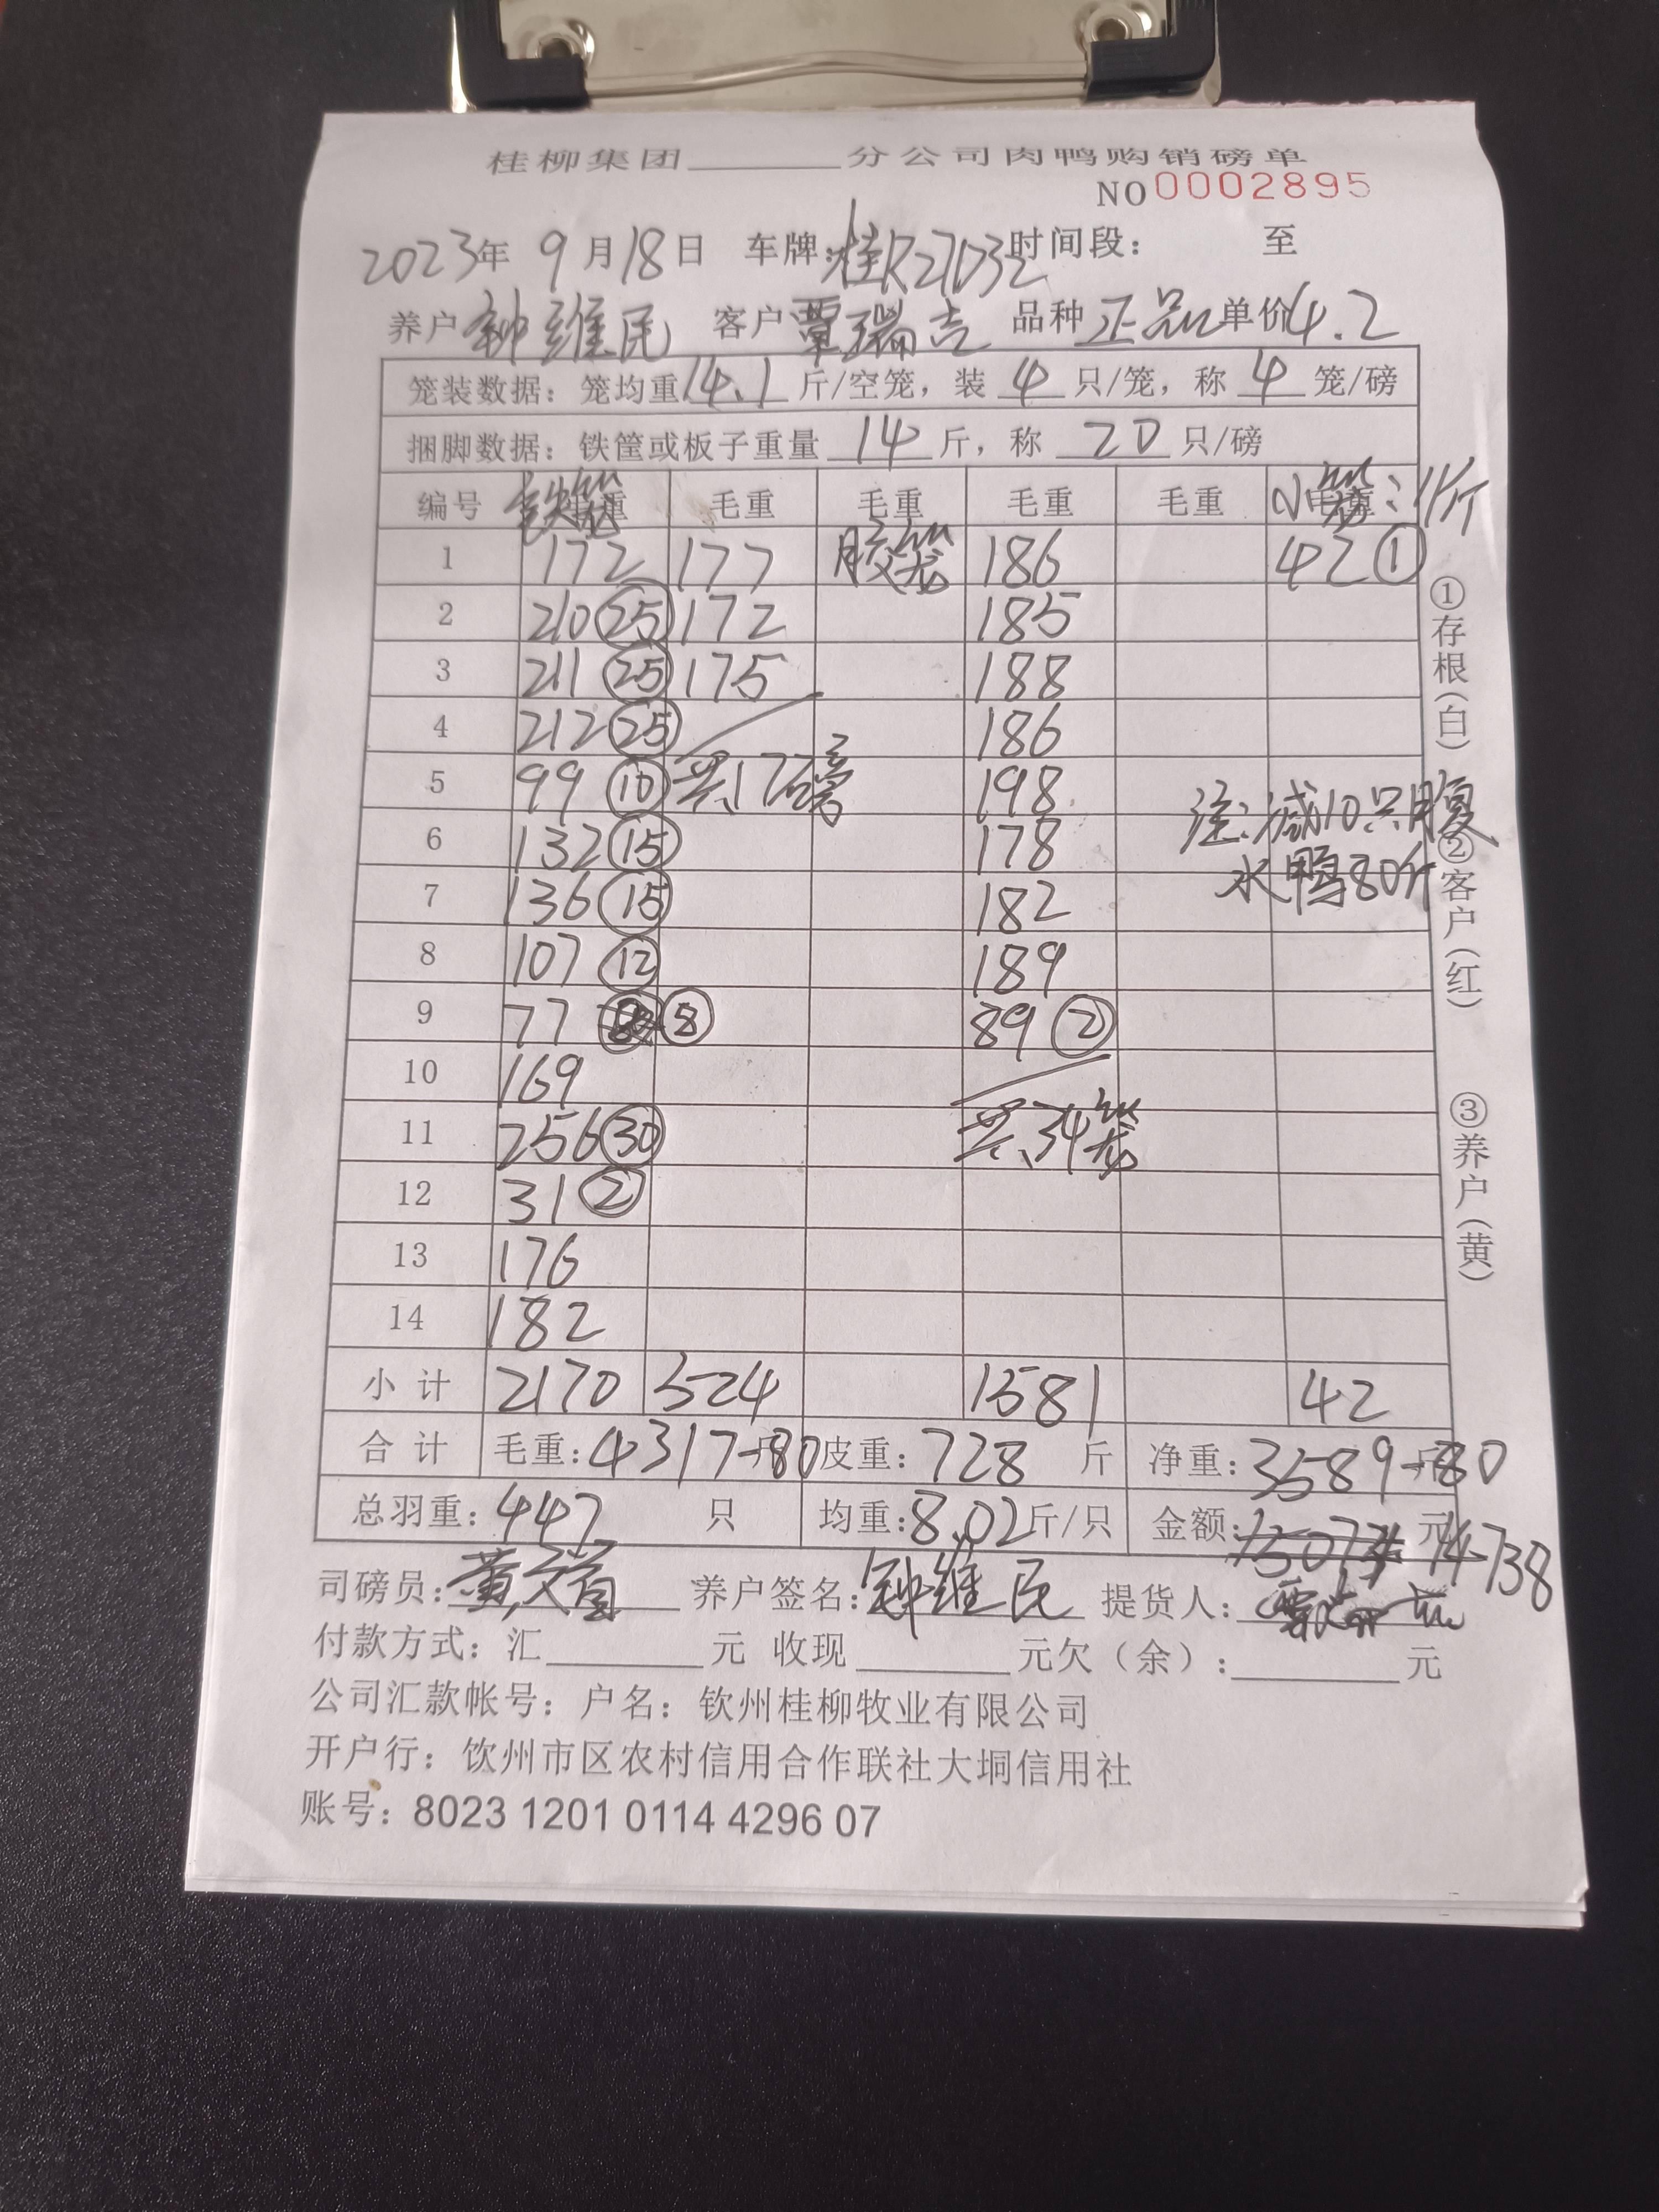 桂柳集团______分公司肉鸭购销磅单
NO 0002895
2023年 9月18日 车牌:桂R27D32 时间段: 至
养户 钟维民 客户 覃瑞吉 品种 正品 单价4.2
笼装数据:笼均重14.1斤/空笼,装 4 只/笼,称 4 笼/磅
捆脚数据:铁筐或板子重量 14 斤,称 20 只/磅
编号 铁笼 毛重 毛重 毛重 毛重 小笼:11斤
1 172 177 胶笼 186 42 ①
2 210 ㉕ 172 185
3 211 ㉕ 175 188
4 212 ㉕ 186
5 99 ⑩ 共17磅 198
6 132 ⑮ 178 注:减10只腹
7 136 ⑮ 182 水鸭80斤
8 107 ⑫ 189
9 77 ⑧ 89 ②
10 169
11 256 ㉚ 共34笼
12 31 ②
13 176
14 182
小计 2170 524 1581 42
合计 毛重:4317-80 皮重:728 斤 净重:3589-80
总羽重:447 只 均重:8.02斤/只 金额: 元 14738
①存根(白) ②客户(红) ③养户(黄)
司磅员: 养户签名:钟维民 提货人:
付款方式:汇______元 收现______元欠(余):______元
公司汇款帐号:户名:钦州桂柳牧业有限公司
开户行:饮州市区农村信用合作联社大垌信用社
账号:8023 1201 0114 4296 07